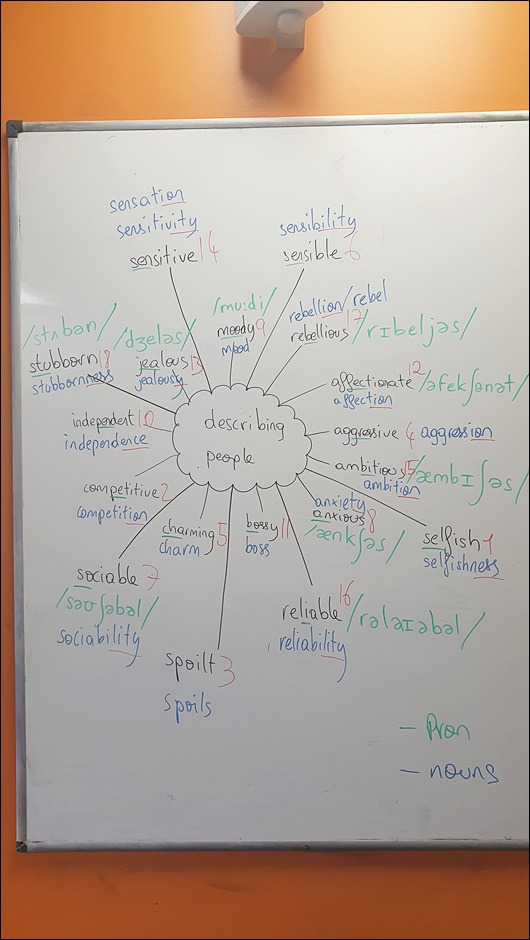 sensation
sensitivity
sensitive 14
sensibility
sensible 6
/mu:di/
moody 9
mood
rebellion/rebel
rebellious 17 /rɪbeljəs/
/stʌbən/
stubborn 18
stubbornness
/dʒeləs/
jealous 13
jealousy
affectionate 12 /əfekʃənət/
affection
independent 10
independence
describing
people
aggressive 4 aggression
ambitious 15 /æmbɪʃəs/
ambition
competitive 2
competition
charming 5
charm
bossy 11
boss
anxiety
anxious 8
/ænkʃəs/
selfish 1
selfishness
sociable 7
/səʊʃəbəl/
sociability
reliable 16 /rəlaɪəbəl/
reliability
spoilt 3
spoils
- Pron
- nouns